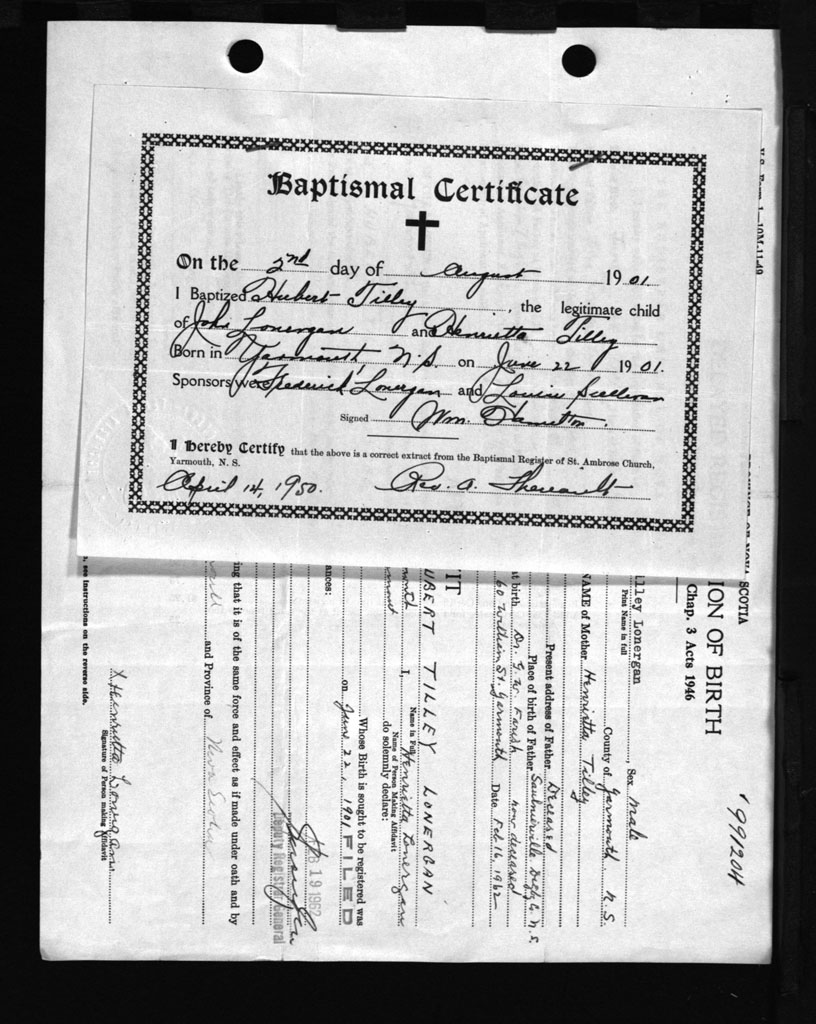 Baptismal Certificate
On the 2nd day of August 1901.
I Baptized Hubert Tilley, the legitimate child
of John Lonergan and Henrietta Tilley
Born in Yarmouth, N.S. on June 22 1901.
Sponsors were Frederick Lonergan and Louise Sullivan
Signed Wm. Hamilton.
I hereby Certify that the above is a correct extract from the Baptismal Register of St. Ambrose Church,
Yarmouth, N. S.
April 14, 1950. Rev. A. Theriault
991204
SCOTIA
ION OF BIRTH
Chap. 3 Acts 1946
illey Lonergan, Sex male
Print Name in full
County of Yarmouth N.S.
NAME of Mother Henrietta Tilley
Present address of Father Deceased
Place of birth of Father Saulnierville Digby Co. N.S.
t birth Dr. G. W. Farish now deceased
60 William St. Yarmouth Date Feb 16, 1962
IT
UBERT TILLEY LONERGAN
Name in Full
I, Henrietta Lonergan
Name of Person Making Affidavit
do solemnly declare:
Whose Birth is sought to be registered was
on June 22, 1901
FILED
B 19 1962
Deputy Registrar General
ances:
ing that it is of the same force and effect as if made under oath and by
and Province of Nova Scotia
X Henrietta Lonergan
Signature of Person making Affidavit
see instructions on the reverse side.